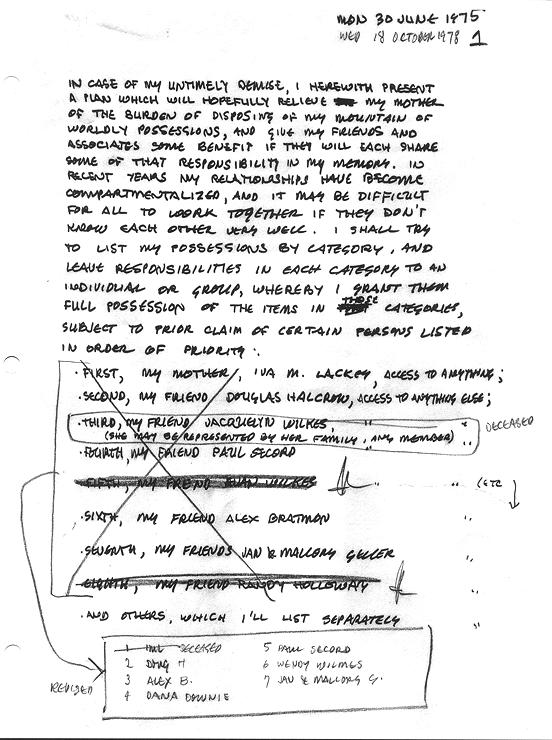 MON 30 JUNE 1975
WED 18 OCTOBER 1978 1
IN CASE OF MY UNTIMELY DEMISE, I HEREWITH PRESENT
A PLAN WHICH WILL HOPEFULLY RELIEVE MY MOTHER
OF THE BURDEN OF DISPOSING OF MY MOUNTAIN OF
WORLDLY POSSESSIONS, AND GIVE MY FRIENDS AND
ASSOCIATES SOME BENEFIT IF THEY WILL EACH SHARE
SOME OF THAT RESPONSIBILITY IN MY MEMORY. IN
RECENT YEARS MY RELATIONSHIPS HAVE BECOME
COMPARTMENTALIZED, AND IT MAY BE DIFFICULT
FOR ALL TO WORK TOGETHER IF THEY DON'T
KNOW EACH OTHER VERY WELL. I SHALL TRY
TO LIST MY POSSESSIONS BY CATEGORY, AND
LEAVE RESPONSIBILITIES IN EACH CATEGORY TO AN
INDIVIDUAL OR GROUP, WHEREBY I GRANT THEM
FULL POSSESSION OF THE ITEMS IN THOSE CATEGORIES,
SUBJECT TO PRIOR CLAIM OF CERTAIN PERSONS LISTED
IN ORDER OF PRIORITY:
· FIRST, MY MOTHER, IVA M. LACKEY, ACCESS TO ANYTHING;
· SECOND, MY FRIEND DOUGLAS HALCROW, ACCESS TO ANYTHING ELSE;
· THIRD, MY FRIEND JACQUELYN WILKES, " "
(SHE MAY BE REPRESENTED BY HER FAMILY, ANY MEMBER) " DECEASED
· FOURTH, MY FRIEND PAUL SECORD
· FIFTH, MY FRIEND WILKES " " (ETC
· SIXTH, MY FRIEND ALEX BRATMON "
· SEVENTH, MY FRIENDS JAN & MALLORY GELLER "
· EIGHTH, MY FRIEND RANDY HOLLOWAY "
· AND OTHERS, WHICH I'LL LIST SEPARATELY "
REVISED
1 IML DECEASED 5 PAUL SECORD
2 DOUG H 6 WENDY WILKES
3 ALEX B. 7 JAN & MALLORY G.
4 DANA DOWNIE